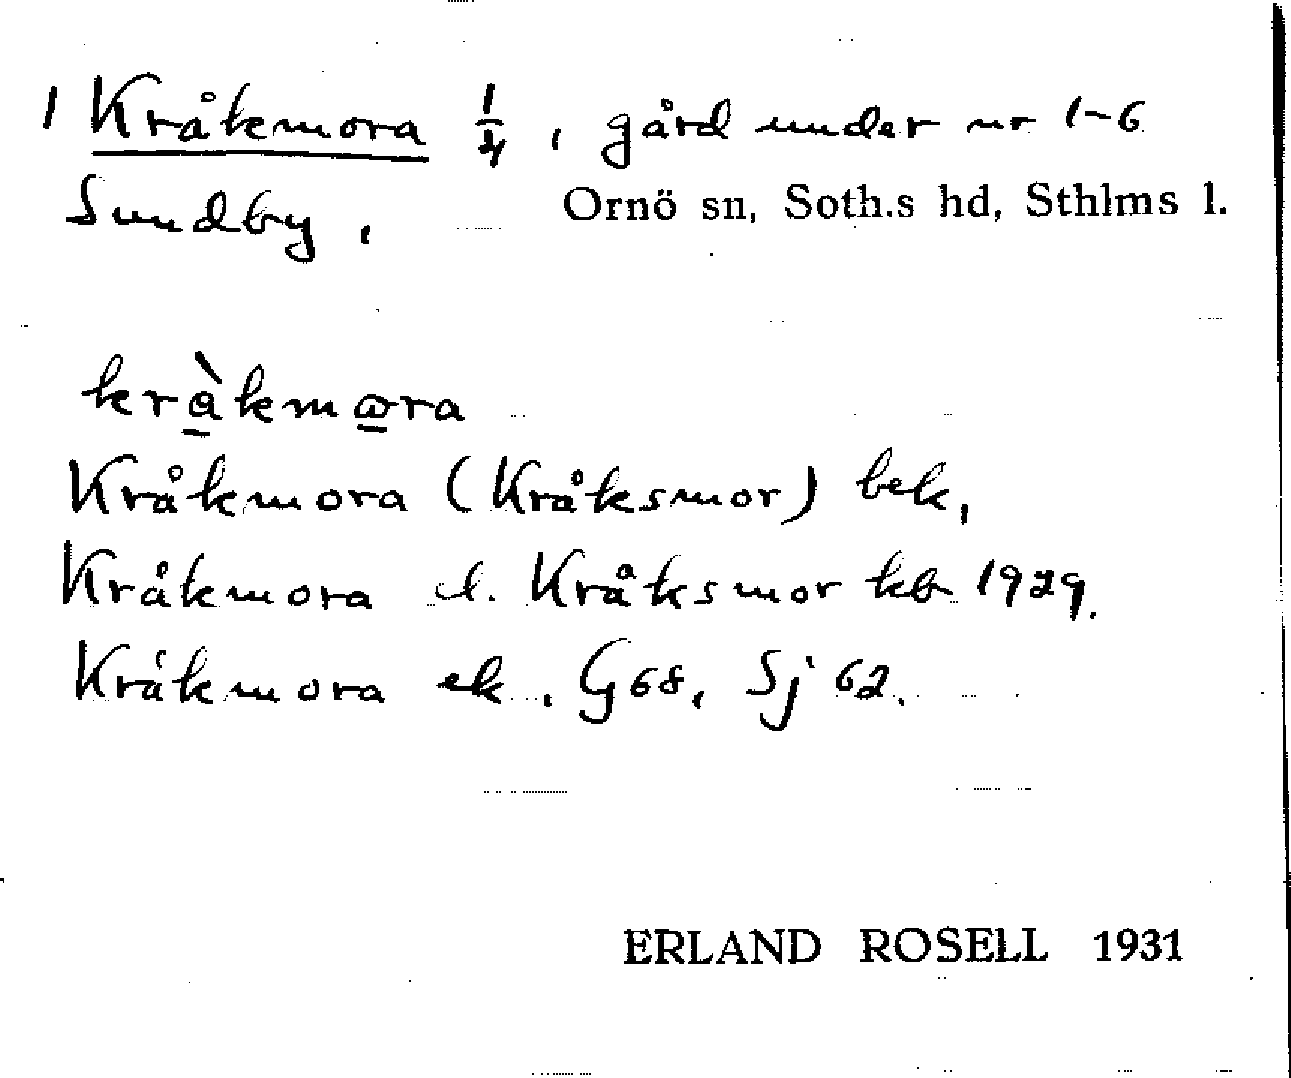 1 Kråkmora 1/4, gård under nr 1-6
Sundby, Ornö sn, Soth.s hd, Sthlms l.
kràkmɷra
Kråkmora (Kråksmor) bek,
Kråkmora el. Kråksmor kb 1929.
Kråkmora ek. G68, Sj 62.
ERLAND ROSELL 1931